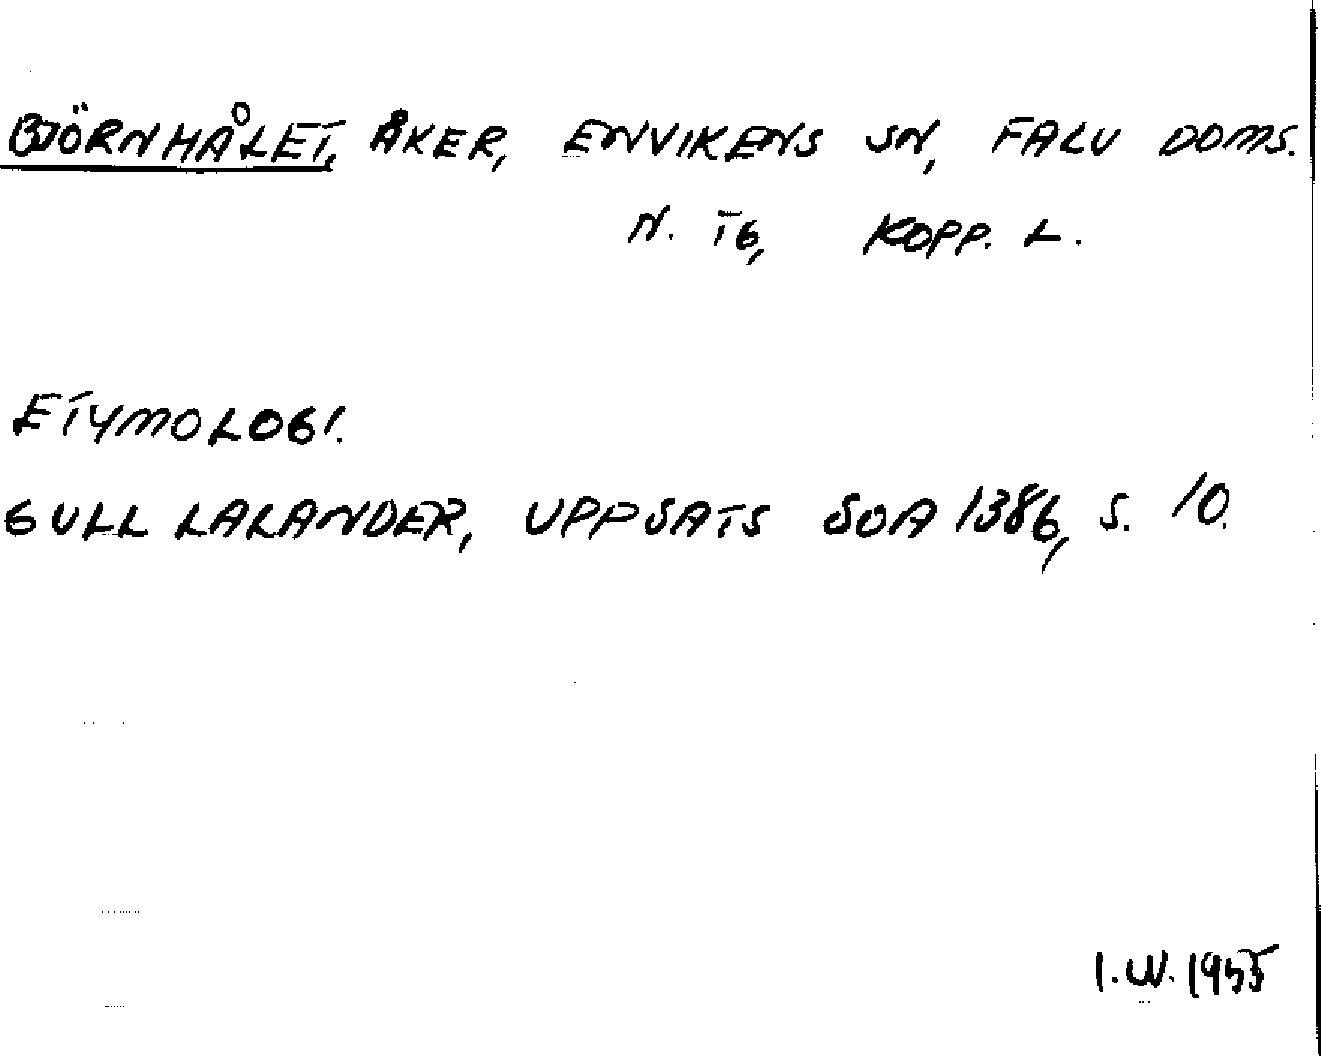 BJÖRNHÅLET, ÅKER, ENVIKENS SN, FALU DOMS.
N. TG, KOPP. L.
ETYMOLOGI.
GULL LALANDER, UPPSATS SOA 1386, S. 10.
I.W. 1955